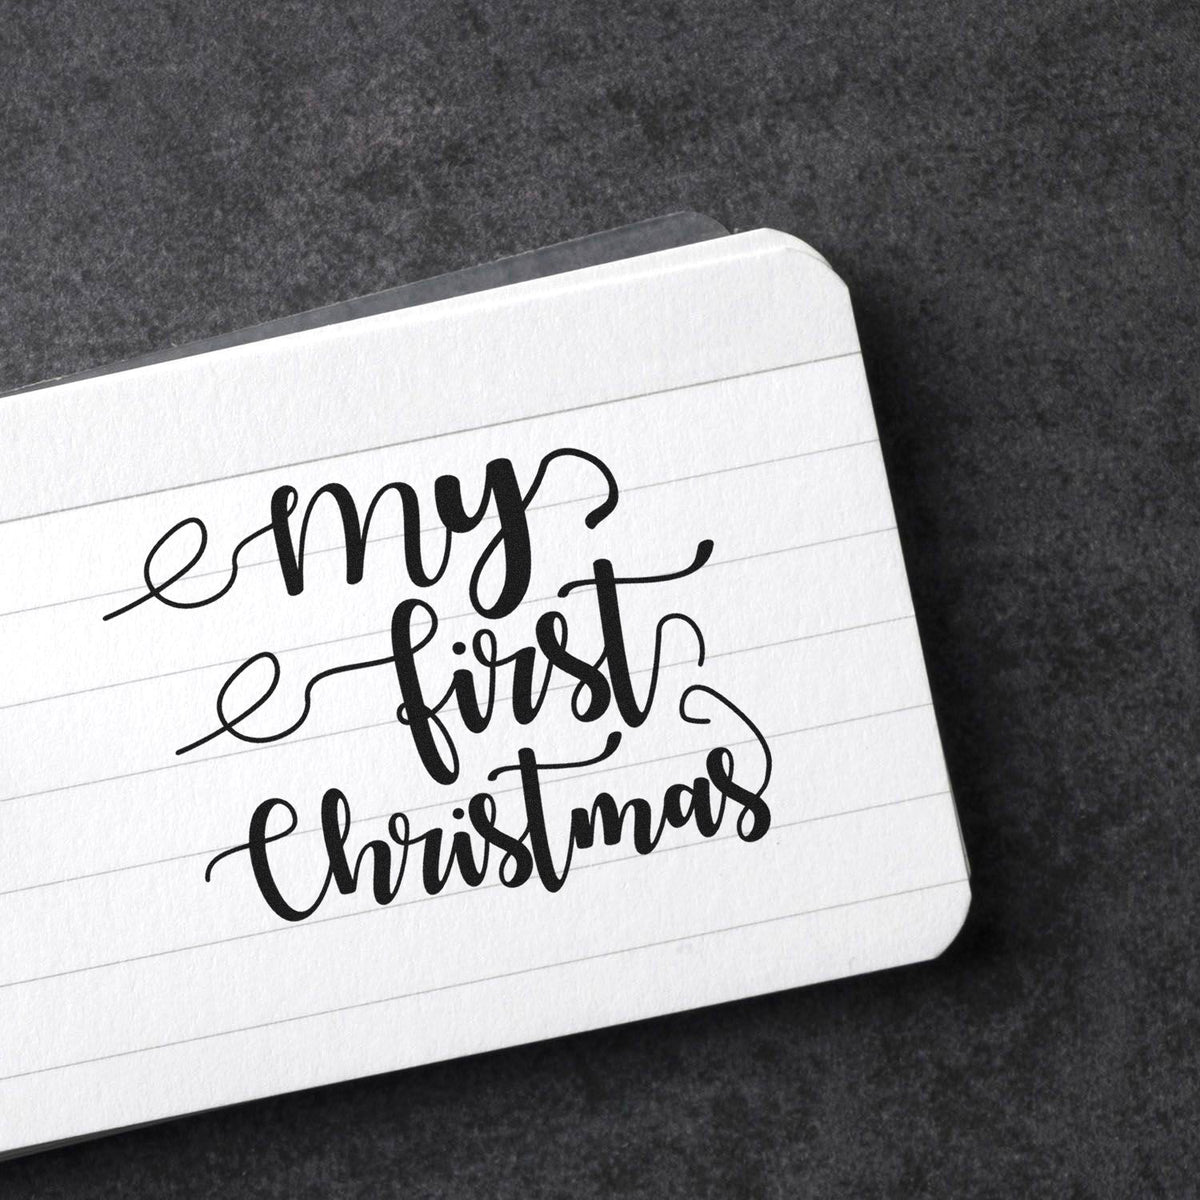 my
first
Christmas